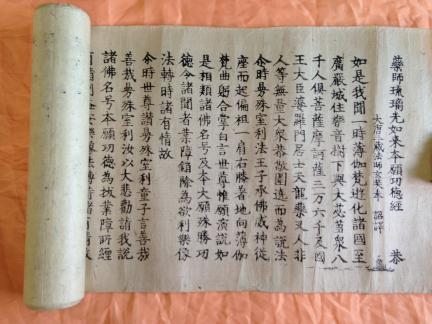 藥師琉璃光如來本願功德經 恭
大唐三藏法師玄奘奉 詔譯
如是我聞一時薄伽梵遊化諸國至
廣嚴城住樂音樹下與大苾芻眾八
千人俱菩薩摩訶薩三万六千及國
王大臣婆羅門居士天龍藥叉人非
人等無量大眾恭敬圍遶而為說法
尒時曼殊室利法王子承佛威神從
座而起偏袒一肩右膝著地向薄伽
梵曲躬合掌白言世尊惟願演說如
是相類諸佛名号及本大願殊勝功
德令諸聞者業障銷除為欲利樂像
法轉時諸有情故
尒時世尊讚曼殊室利童子言善哉
善哉曼殊室利汝以大悲勸請我說
諸佛名号本願功德為拔業障所纏
有情利益安樂像法轉時諸有情故